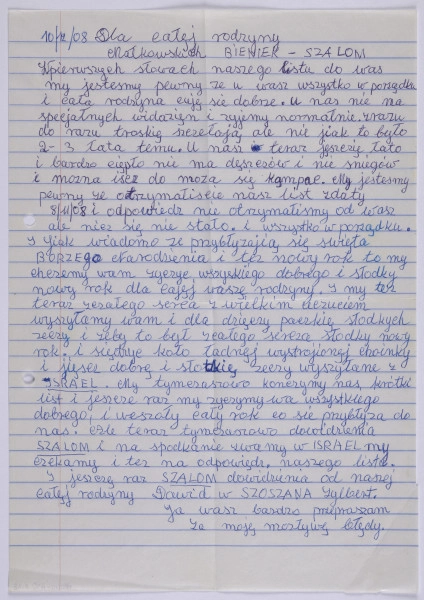 10/XI/08 Dla całej rodzyny
Małkowskich BIENIEK - SZALOM
Wpierwszych słowach naszego listu do was
my jestesmy pewny że u wasz wszystko w porządku
i całą rodzyna czują się dobrze. U nas nie ma
specjalnych widażyn i żyjemy normalnie. zrazu
do razu troskię szczelają, ale nie jiak to było
2-3 lata temu. U nasz teraz jeszczę lato
i bardzo ciępło nie ma dęszczów i nie sniegów
i można iśez do moża się kąmpac. My jestesmy
pewny ze otrymatiscie nasz list zdaty
8/II/08 i odpowiedz nie otrymatismy od wasz
ale niez się nie stało. i wszystko w porządku.
I jiak wiadomo ze przybłyżają się swięta
BORZEGO Narodzenia i tez nowy rok to my
chczemy wam życzyc wszyskiego dobrego i słodky
nowy rok dla całej waszę rodzyny. I my tez
teraz zcałego serca z wielkim czuciem
wyszyłamy wam i dla dzięczy paczkię słodkych
rzeczy i żęby to był zcałego serca słodky nowy
rok. i siędnje koło ładniej wystrojonej choinky
i jięsez dobrę i słotkię rzeczy wyszyłane z
ISRAEL. My tymczasrowo konczymy nas krótki
list i jeszcze raz my życzymy wa wszystkiego
dobrego, i wesoły cały rok co się przybłyża do
nas. Ale teraz tymczasrowo dowidzenia
SZALOM i na spodkanie zwamy w ISRAEL my
czekamy i tez na odpowiędz. naszego lista.
I jeszczę raz SZALOM dowidzenia od naszej
całej rodzyny Dawid w SZOSZANA Sylbert.
Ja wasz bardzo przypraszam
Za moję mozływę błędy.